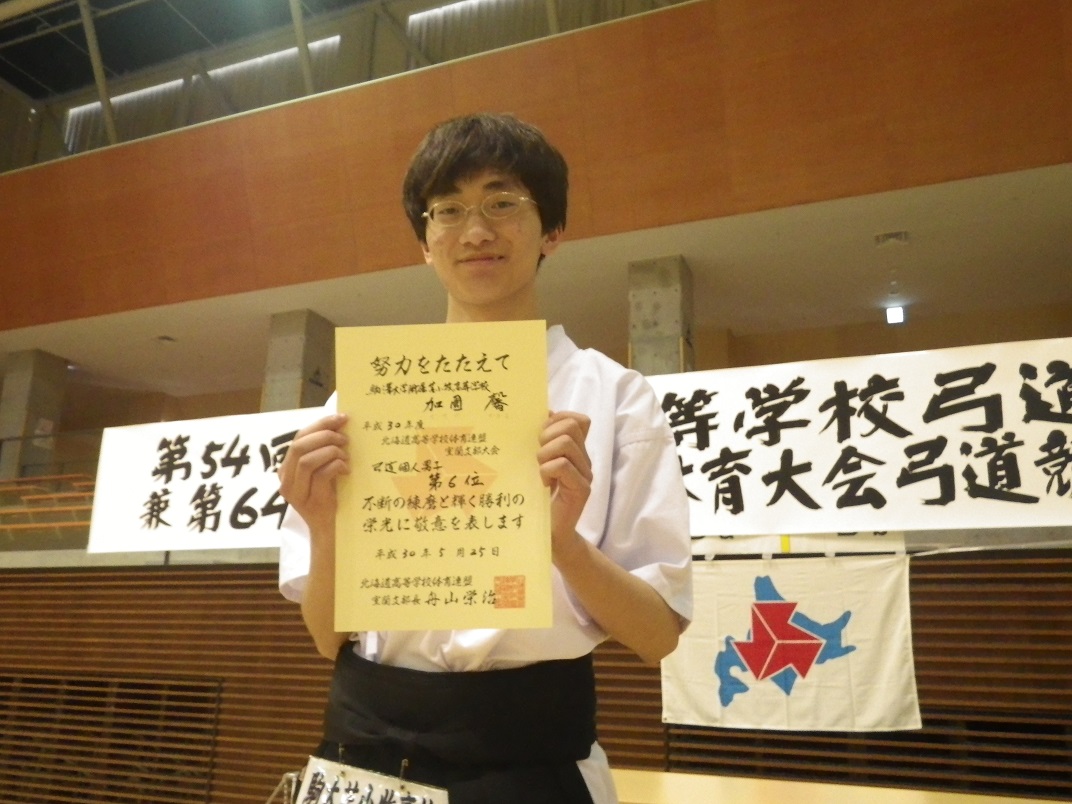 努力をたたえて
駒澤大学附属苫小牧高等学校
加國 馨
平成30年度
北海道高等学校体育連盟
室蘭支部大会
弓道個人男子
第6位
不断の練磨と輝く勝利の
栄光に敬意を表します
平成30年5月25日
北海道高等学校体育連盟
室蘭支部長 舟山栄治
第54回
兼 第64
等学校弓道
体育大会弓道競
駒大苫小牧高校